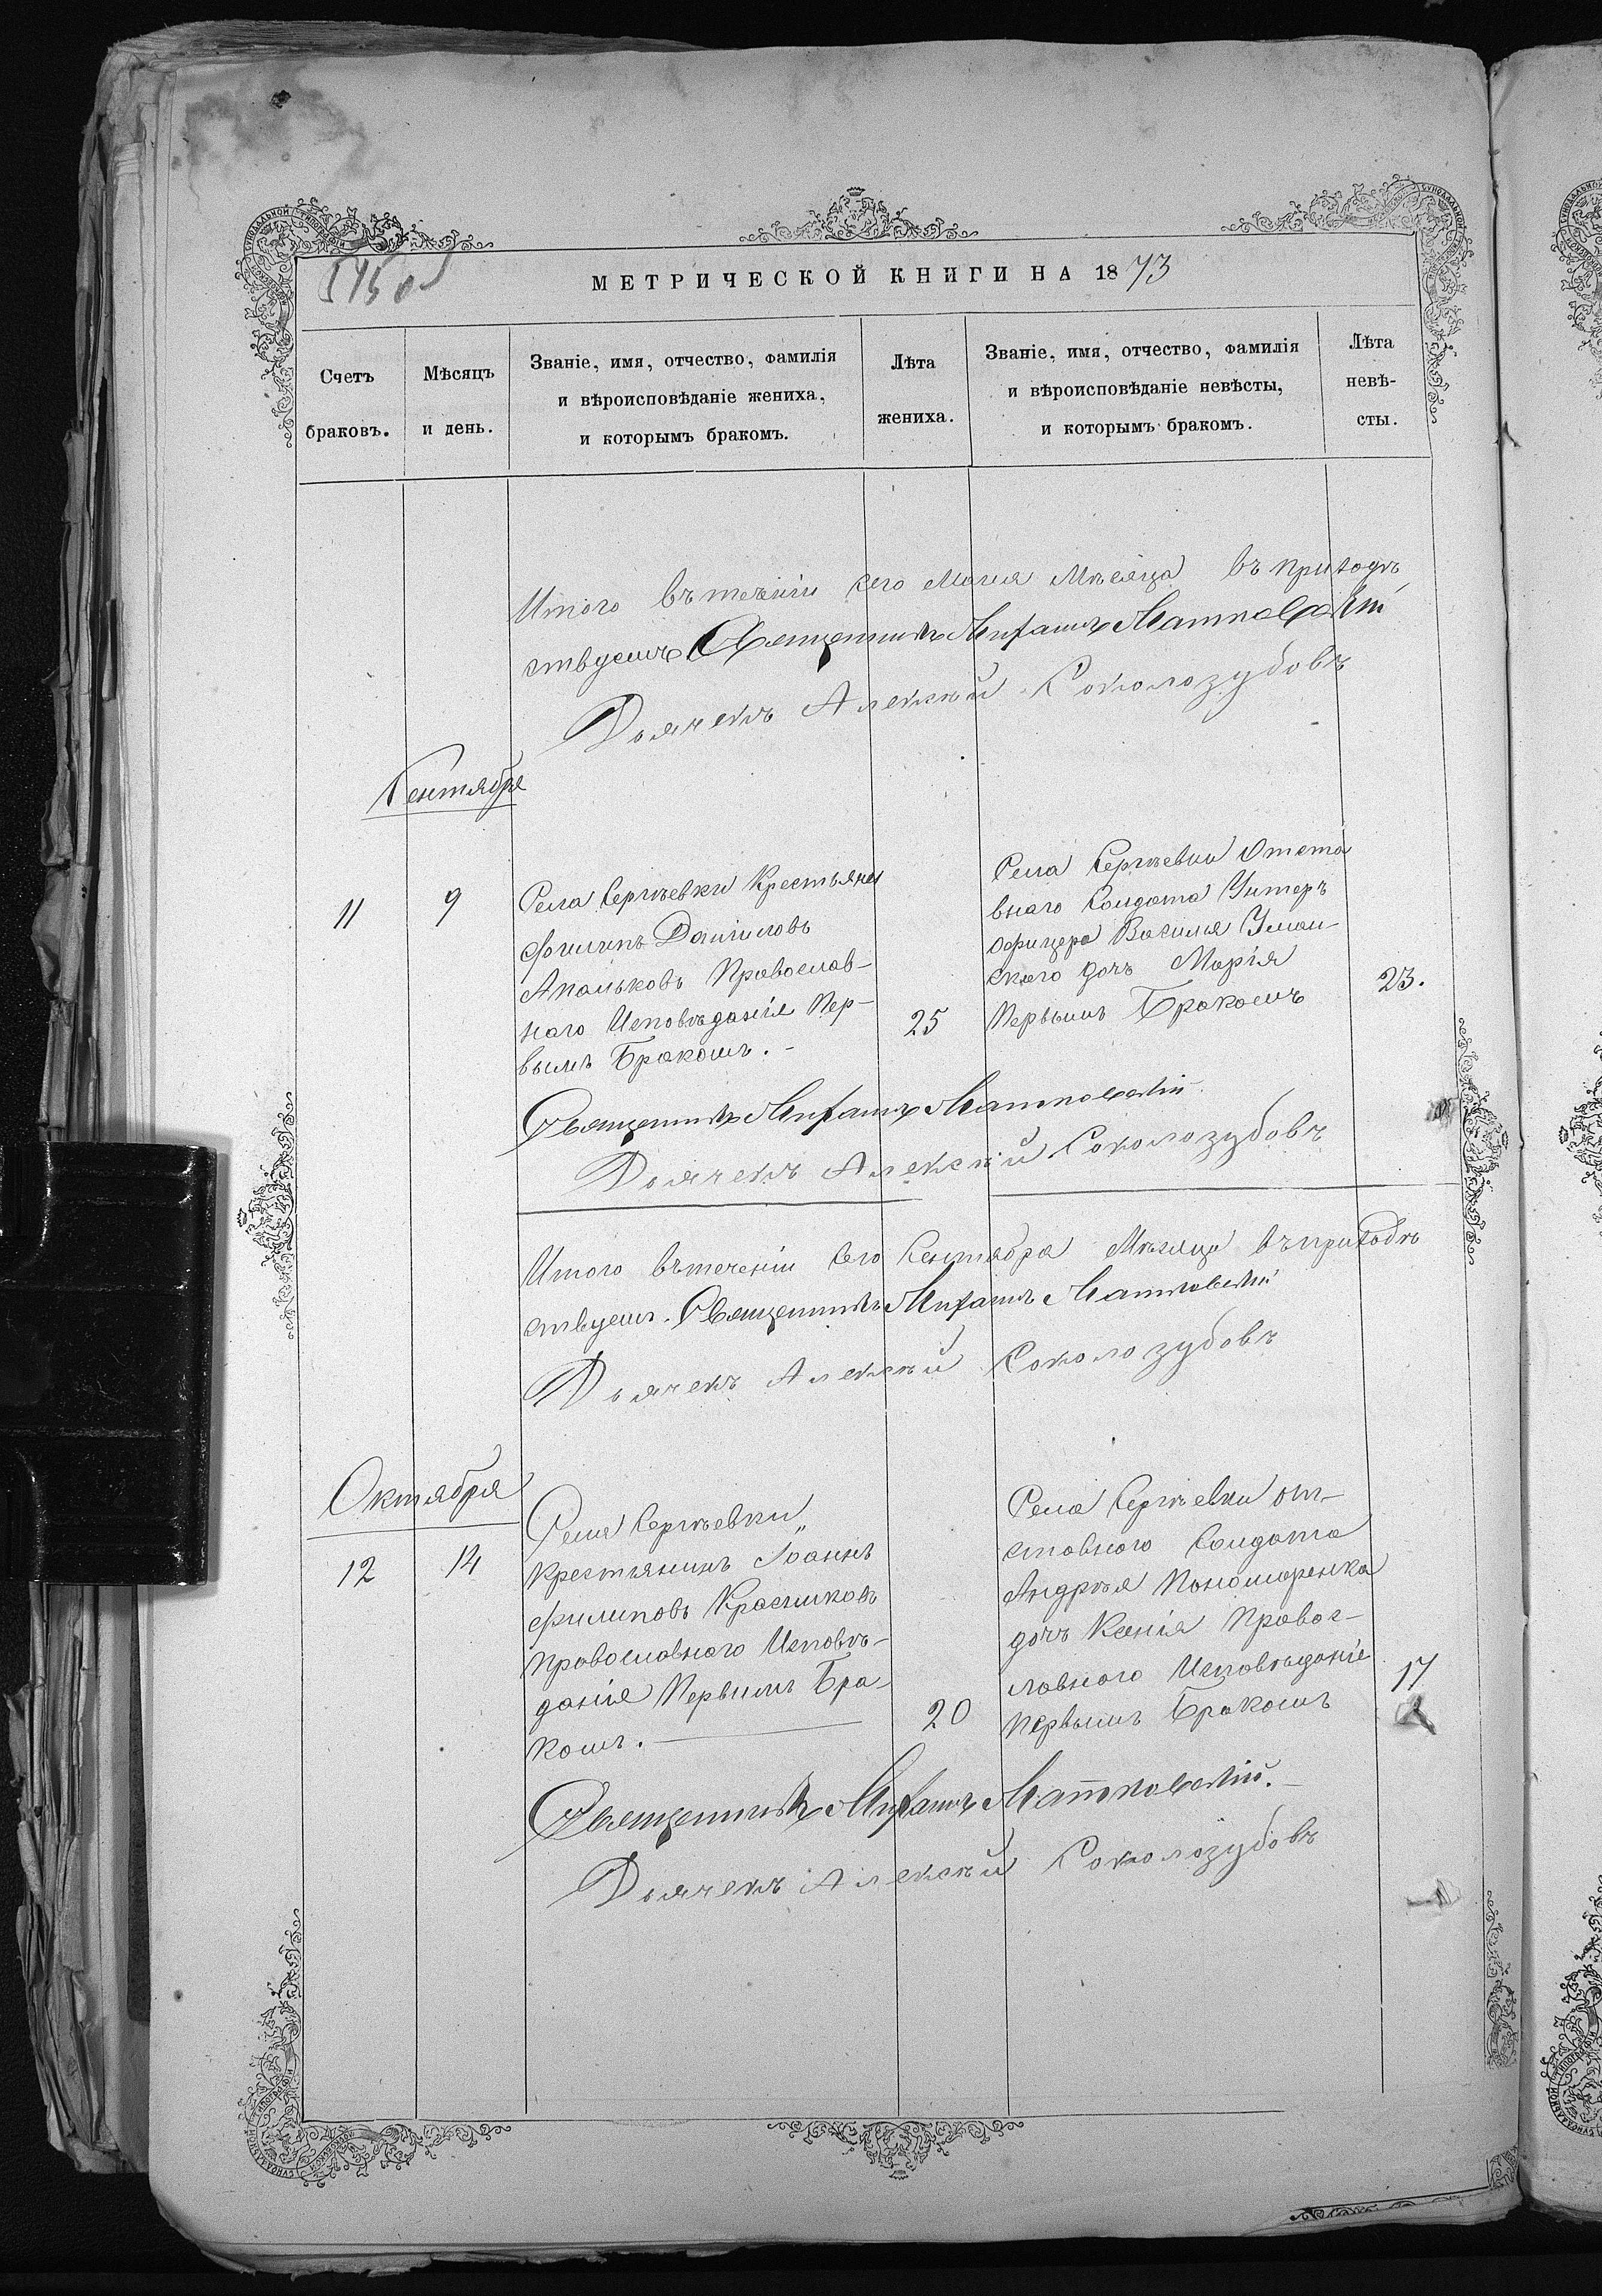 МЕТРИЧЕСКОЙ КНИГИ НА 1873
Счетъ браковъ.
Мѣсяцъ и день.
Званіе, имя, отчество, фамилія
и вѣроисповѣданіе жениха,
и которымъ бракомъ.
Лѣта жениха.
Званіе, имя, отчество, фамилія
и вѣроисповѣданіе невѣсты,
и которымъ бракомъ.
Лѣта невѣ-
сты.
Итого въ теченіи сего Маія Мѣсяца въ приходѣ
ствуемъ Священникъ Михаилъ
Дьячекъ Алексѣй Соколозубовъ
Сентября
11
9
Села Сергѣевки Крестьянинъ
Филипъ Даниловъ
Апальковъ Православ-
наго Исповѣданія Пер-
вымъ Бракомъ.
25
Села Сергѣевки Отста
внаго Солдата Унтеръ
Офицера Василія Уман-
скаго дочь Марія
Первымъ Бракомъ
23.
Священникъ Михаилъ
Дьячекъ Алексѣй Соколозубовъ
Итого въ теченіи Сего Сентября Мѣсяца въ приходѣ
ствуемъ. Священникъ Михаилъ
Дьячекъ Алексѣй Соколозубовъ
Октября
12
14
Села Сергѣевки
Крестьянинъ Іоаннъ
Филиповъ Красниковъ
Православнаго Исповѣ-
данія Первымъ Бра-
комъ.
20
Села Сергѣевки от-
ставного Солдата
Андрѣя Пономаренка
дочь Ксенія Правос-
лавнаго Исповѣданіе
Первымъ Бракомъ
17
Священникъ Михаилъ
Дьячекъ Алексѣй Соколозубовъ